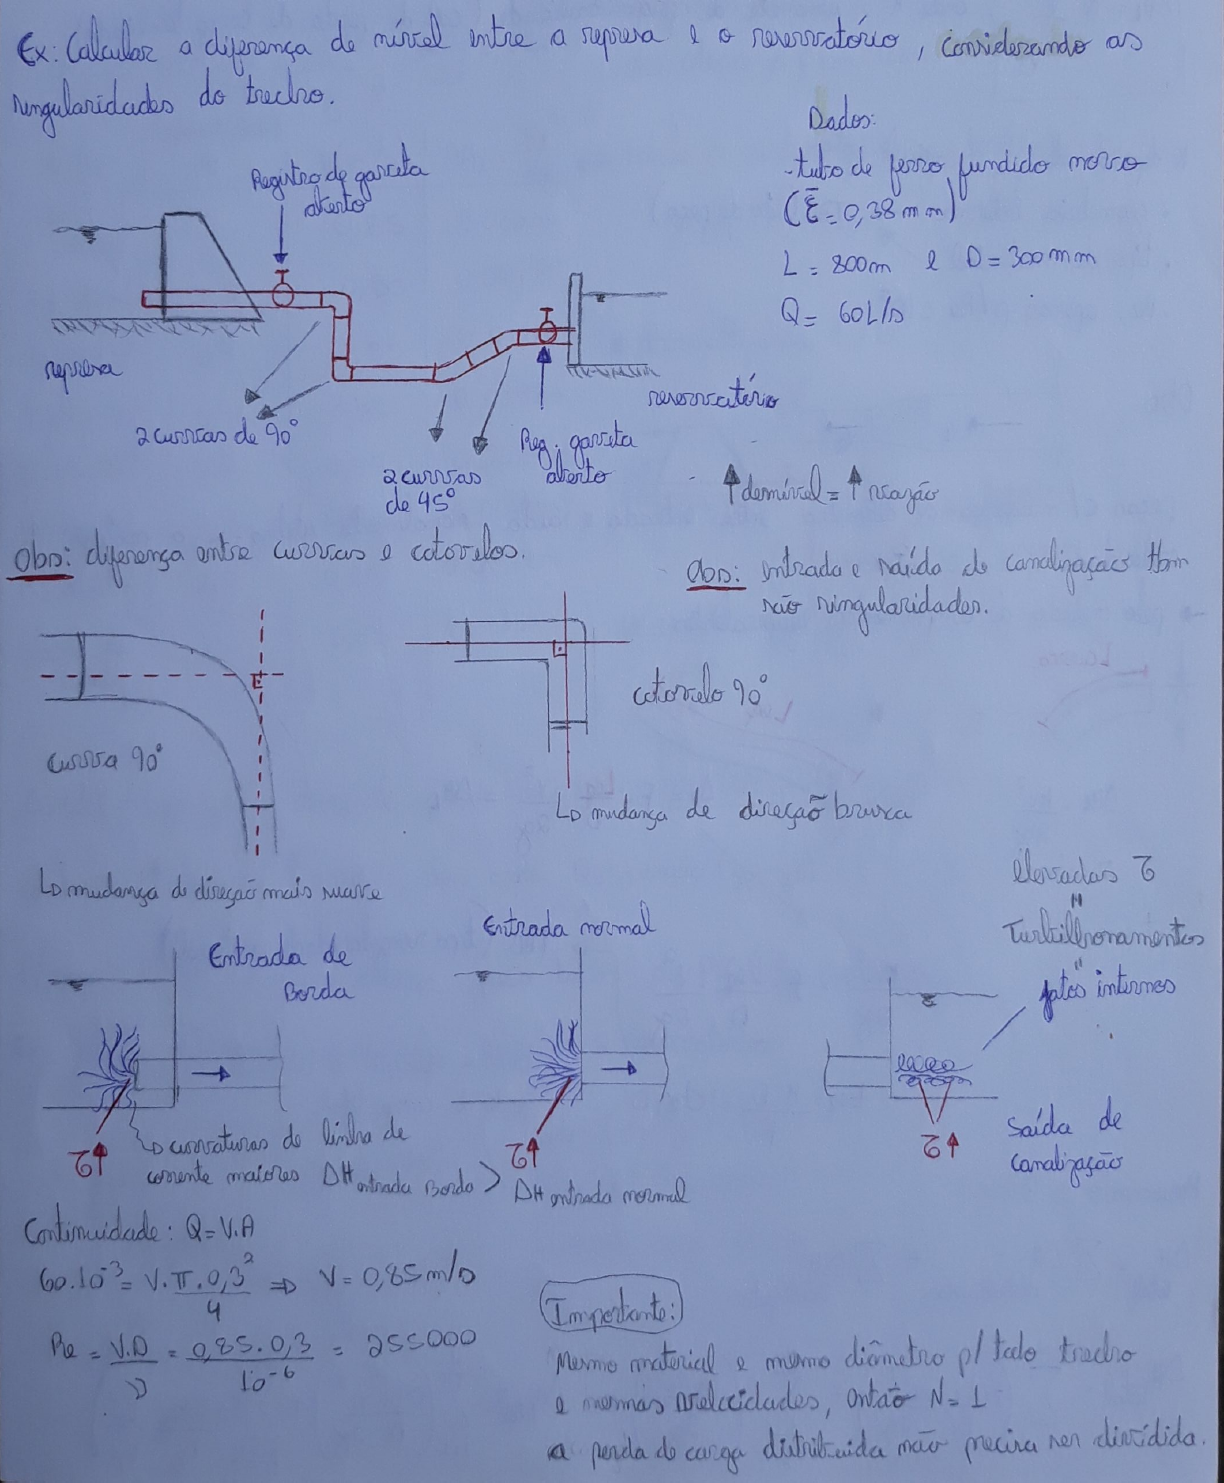 Ex: Calcular a diferença de nível entre a represa e o reservatório, considerando as
singularidades do trecho.
Dados:
- tubo de ferro fundido novo
(ε̄ = 0,38 mm)
L = 800m e D = 300mm
Q = 60L/s
Registro de gaveta
aberto
represa
2 curvas de 90°
2 curvas
de 45°
Reg. gaveta
aberto
reservatório
↑ desnível = ↑ vazão
Obs: diferença entre curvas e cotovelos.
Obs: entrada e saída de canalização tbm
são singularidades.
curva 90°
cotovelo 90°
↳ mudança de direção brusca
↳ mudança de direção mais suave
Entrada de
Borda
Entrada normal
Elevadas τ
"
Turbilhonamentos
"
jatos internos
τ↑
↳ curvaturas de linha de
corrente maiores ΔH entrada Borda > ΔH entrada normal
τ↑
τ↑
Saída de
canalização
Continuidade: Q = V.A
60.10⁻³ = V.π.0,3²/4 ⇒ V = 0,85m/s
Re = V.D/ν = 0,85.0,3/10⁻⁶ = 255000
Importante:
Mesmo material e mesmo diâmetro p/ todo trecho
e mesmas velocidades, então N = 1
a perda de carga distribuida não precisa ser dividida.